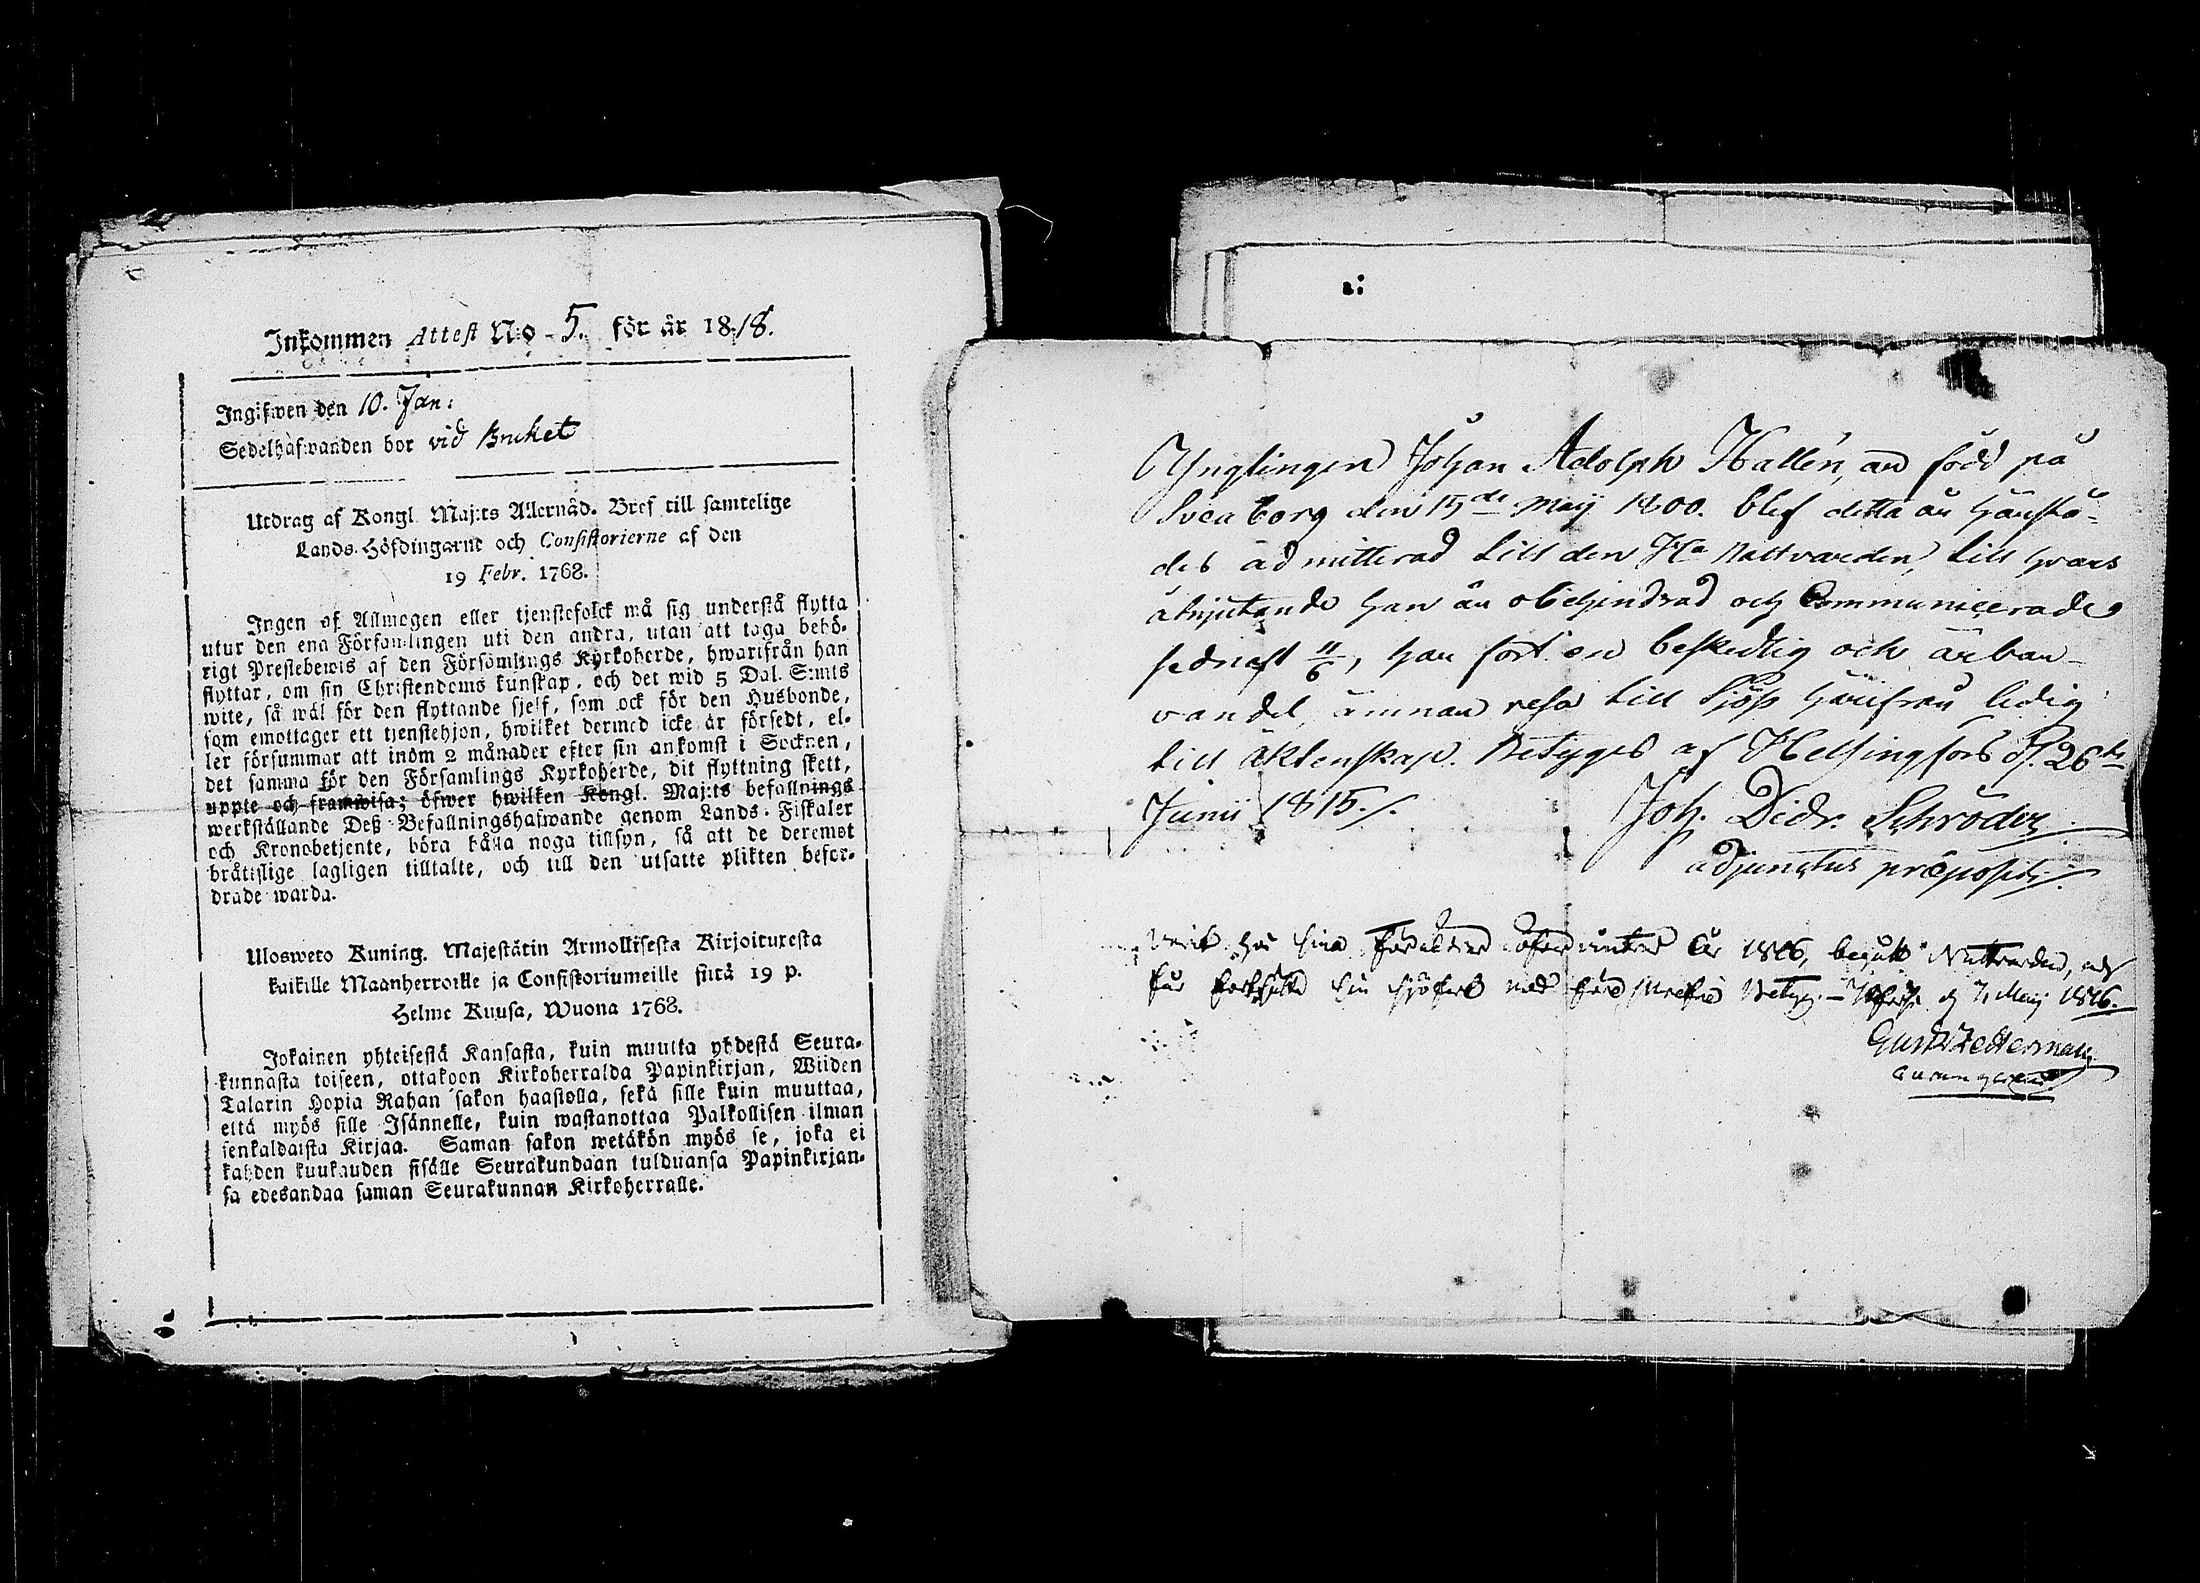 Inkommen Attest N:o 5. för år 1818.
Ingifwen den 10. Jan:
Sedelhafwanden bor vid Bruket
Utdrag af Kongl. Maj:ts Allernåd. Bref till samtelige
Lands-Höfdingarne och Consistorierne af den
19 Febr. 1768.
Ingen af Allmogen eller tjenstefolck må sig understå flytta
utur den ena Församlingen uti den andra, utan att taga behö-
rigt Prestebewis af den Församlings Kyrkoherde, hwarifrån han
flyttar, om sin Christendoms kunskap, och det wid 5 Dal. S:mts
wite, så wäl för den flyttande sjelf, som ock för den Husbonde,
som emottager ett tjenstehjon, hwilket dermed icke är försedt, el-
ler försummar att inom 2 månader efter sin ankomst i Socknen,
det samma för den Församlings Kyrkoherde, dit flyttning skett,
uppte och framwisa; öfwer hwilken Kongl. Maj:ts befallnings
werkställande Deß Befallningshafwande genom Lands-Fiskaler
och Kronobetjente, böra hålla noga tillsyn, så att de deremot
bråttslige lagligen tilltalte, och till den utsatte plikten befor-
drade warda.
Ulosweto Kuning. Majestätin Armollisesta Kirjoituxesta
kaikille Maanherroille ja Consistoriumeille siitä 19 p.
Helme Kuusa, Wuona 1768.
Jokainen yhteisestä Kansasta, kuin muutta yhdestä Seura-
kunnasta toiseen, ottakoon Kirkoherralda Papinkirjan, Wiiden
Talarin Hopia Rahan sakon haastolla, sekä sille kuin muuttaa,
että myös sille Isännelle, kuin wastanottaa Palkollisen ilman
senkaldaista Kirjaa. Saman sakon wetäkön myös se, joka ei
kahden kuukauden sisälle Seurakundaan tulduansa Papinkirjan-
sa edesandaa saman Seurakunnan Kirkoherralle.
Ynglingen Johan Adolph Hallén, är född på
Sveaborg den 15de Maij 1800. blef detta år härstä-
des admitterad till den Ha Nattvarden, till hvars
åtnjutande han är obehindrad och Communicerade
sednast 11/6, har fört en beskedlig och ärbar
vandel, ämnar resa till Sjöss härifrån ledig
till äktenskap. Betygas af Helsingfors d. 26te
Junii 1815./.
Joh. Didr. Schröder
adjunctus præpositi./.
Varit hos sina Föräldrar öfver vintern år 1816, begått Nattvarden, och
får fortsätta sin sjöfart med före skrefne Betyg. – d 7 Maij 1816.
Gust Zederman